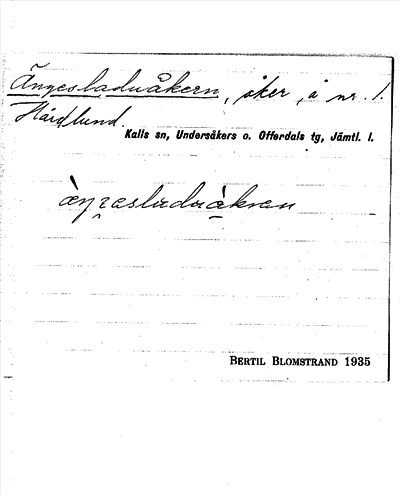 Ängesladuåkern, åker, å nr. 1.
Hårdlund.
Kalls sn, Undersåkers o. Offerdals tg, Jämtl. l.
BERTIL BLOMSTRAND 1935